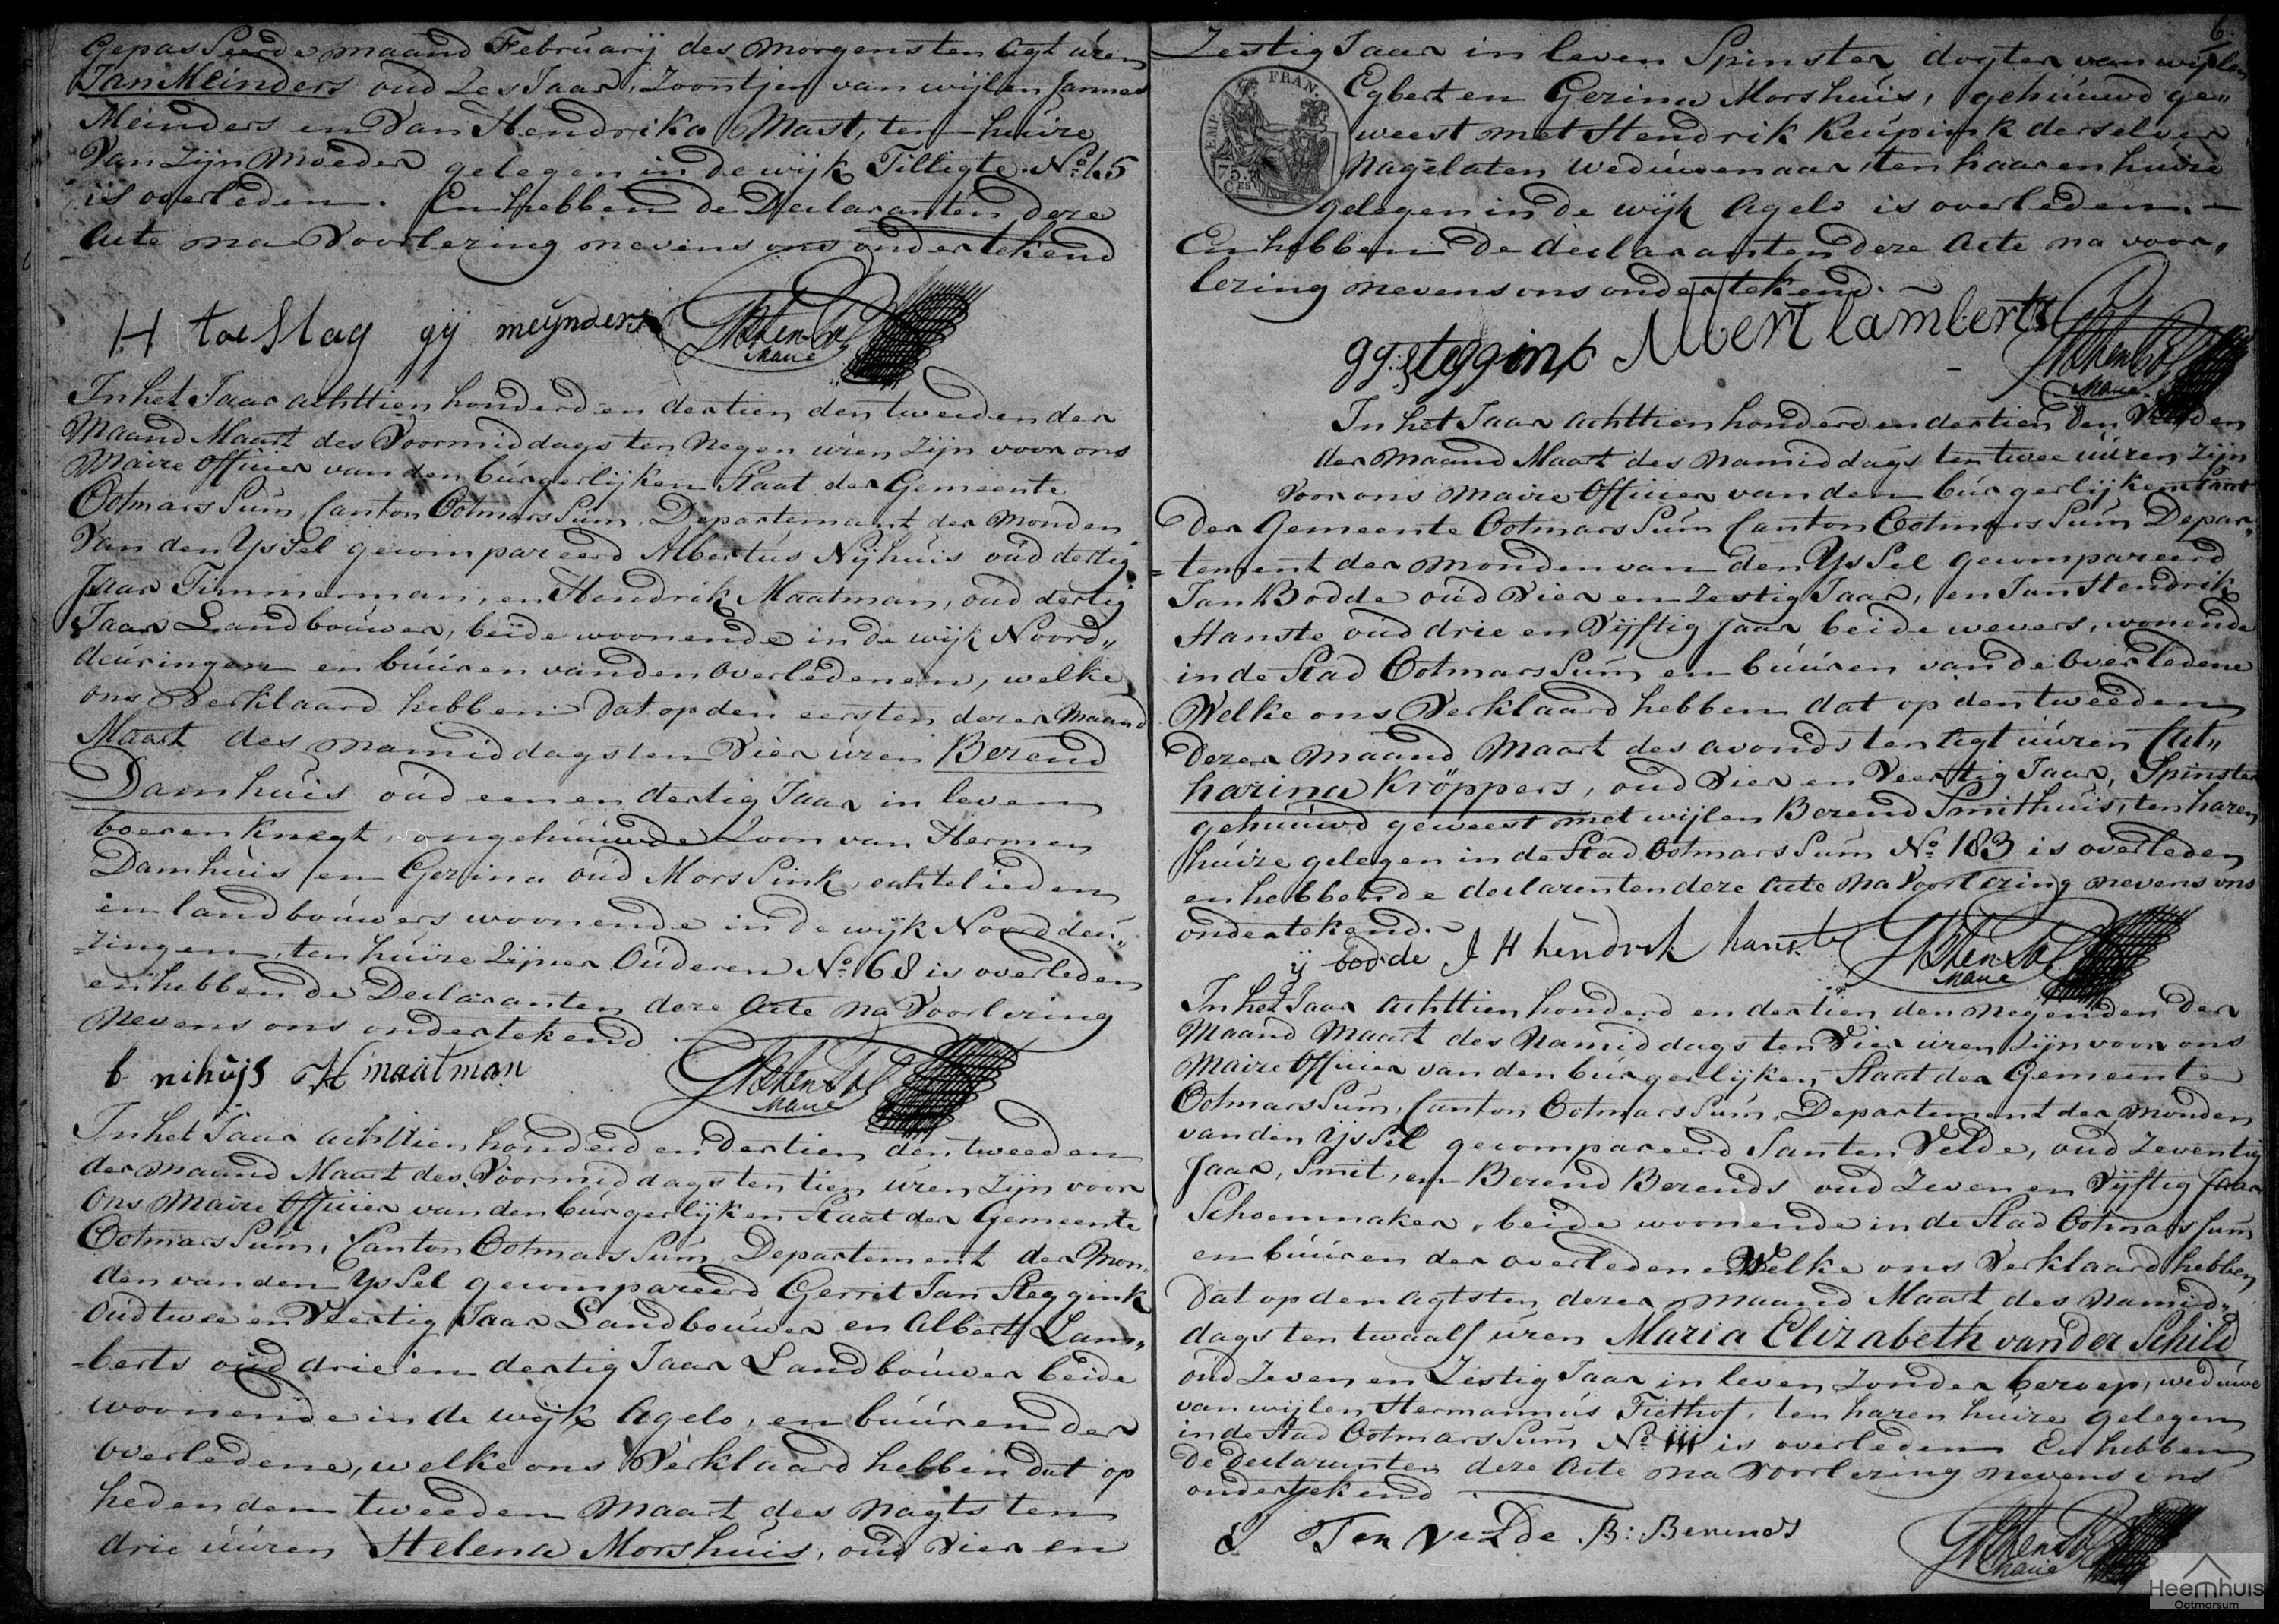 Gepasseerde maand Februarij des morgens ten agt úren
Jan Meinders oúd Zes Jaar, Zoontjen van wijlen Jannes
Meinders en van Hendrika Mast, ten húize
van zijn Moeder gelegen in de wijk Tilligte No 15
is overleden. En hebben de Declaranten deze
Acte na voorlezing nevens ons ondertekend
H toeslag gj meijnders
Maire
In het Jaar achttien honderd en dertien den tweeden der
Maand Maart des Voormiddags ten Negen úren zijn voor ons
Maire Officier van den búrgerlijken Staat der Gemeente
Ootmarssúm, Canton Ootmarssúm, Departement der Monden
van den Yssel gecompareerd Albertús Nijhúis oúd dertig
Jaar Timmerman, en Hendrik Maatman, oúd dertig
Jaar Landboúwer, beide woonende in de wijk Noord„
deúringen en búúren van den Overledenen, welke
ons Verklaard hebben dat op den eersten dezer Maand
Maart des namiddags ten Vier úren Berend
Damhúis oúd een en dertig Jaar in leven
boeren Knegt, ongehúúwde Zoon van Hermen
Damhúis en Gezina oúd Morssink, echtelieden
en landboúwers woonende in de wijk Noorddeú„
ringen, ten húize zijner Oúderen No 68 is overleden
en hebben de Declaranten deze Acte na Voorlezing
Nevens ons ondertekend
b nihujs H maatman
Maire
In het Jaar achttien honderd en dertien den tweeden
der maand Maart des Voormiddags ten tien úren zijn voor
Ons Maire Officier van den búrgerlijken Staat der Gemeente
Ootmarssúm, Canton Ootmarssúm Departement der Mon„
den van den Yssel gecompareerd Gerrit Jan Steggink
oúd twee en Veertig Jaar Landboúwer en Albert Lam„
berts oúd drie en dertig Jaar Landboúwer beide
woonende in de wijk Agelo, en búúren der
overledene, welke ons Verklaard hebben dat op
heden den tweeden Maart des Nagts ten
drie úúren Helena Morshúis, oúd Vier en
6.
Zestig Jaar in leven Spinster dogter van wijlen
EMP. FRAN.
75. CES
Egbert en Gezina Morshúis, gehúúwd ge„
weest met Hendrik Keúpink derselver
Nagelaten Wedúwenaar, ten haaren húize
gelegen in de wijk Agelo is overleden. —
En hebben de declaranten deze Acte na voor„
lezing nevens ons ondertekend. —
gj steggink Albert lamberts
Maire
In het Jaar achttien honderd en dertien den
der Maand Maart des Namiddags ten twee úúren zijn
voor ons Maire Officier van den búrgerlijken Staat
der Gemeente Ootmarssúm Canton Ootmarssúm Depar„
tement der Monden van den Yssel gecompareerd
Jan Bodde oúd Vier en Zestig Jaar, en Jan Hendrik
Hanste oúd drie en Vijftig Jaar beide wevers, wonende
in de Stad Ootmarssúm en búúren van de Overledene
Welke ons Verklaard hebben dat op den tweeden
dezer maand Maart des avonds ten Agt úúren Cat„
harina Kröppers, oúd Vier en Veertig Jaar, Spinster
gehúúwd geweest met wijlen Berend Smithúis, ten haren
húize gelegen in de Stad Ootmarssúm No 183 is overleden
en hebben de declarenten deze Acte na Voorlezing nevens ons
ondertekend. —
ij bodde J H hendrik hanste
Maire
In het Jaar achttien honderd en dertien den Negenden der
Maand Maart des Namiddags ten Vier úren zijn voor ons
Maire Officier van den búrgerlijken Staat der Gemeente
Ootmarssúm, Canton Ootmarssúm, Departement der Monden
van den Yssel gecompareerd Jan ten Velde, oúd Zeventig
Jaar, Smit, en Berend Berends oúd Zeven en Vijftig Jaar
Schoenmaker, beide woonende in de Stad Ootmarssúm
en búúren der overledene Welke ons Verklaard hebben
dat op den agtsten dezer maand Maart des Namid„
dags ten twaalf úren Maria Elizabeth van der Schild
oúd Zeven en Zestig Jaar in leven Zonder beroep, wedúwe
van wijlen Hermannús Tiethof, ten haren húize gelegen
in de Stad Ootmarssúm No 111 is overleden En hebben
de Declaranten deze Acte na Voorlezing nevens ons
ondertekend
J Ten Velde B: Berends
Maire
Heemhuis
Ootmarsum